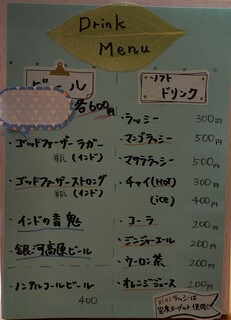 Drink
Menu
ビール
各600円
・ゴッドファーザーラガー
瓶(インド)
・ゴッドファーザーストロング
瓶(インド)
・インドの青鬼
・銀河高原ビール
・ノンアルコールビール
400
ソフト
ドリンク
・ラッシー 300円
・マンゴラッシー 500円
・マサララッシー 500円
・チャイ(HOT) 300
(ice) 400
・コーラ 200円
・ジンジャーエール 200円
・ウーロン茶 200円
・オレンジジュース 200円
ラッシーは
自家ヨーグルト使用!